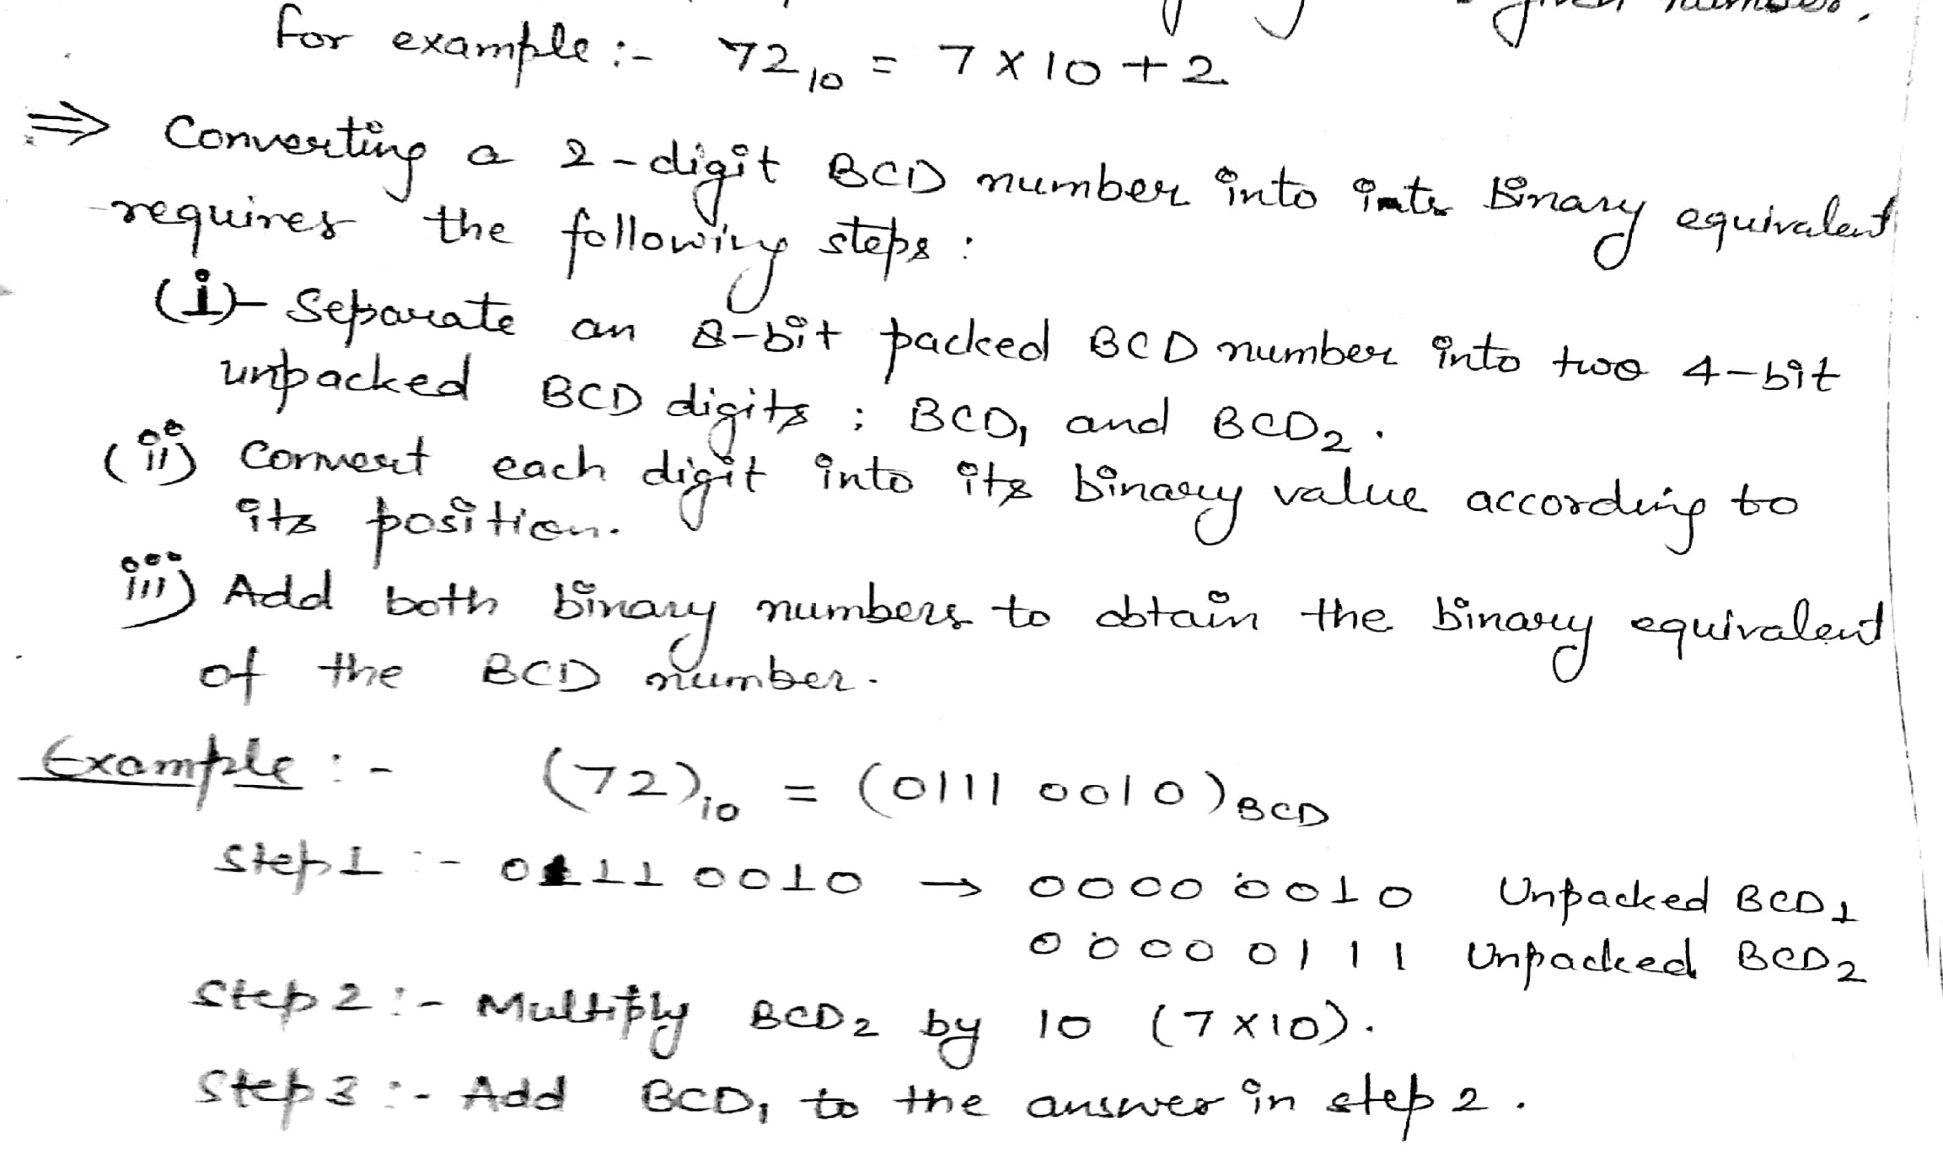 given number.
for example :- 72₁₀ = 7 × 10 + 2
⇒ Converting a 2-digit BCD number into into Binary equivalent
requires the following steps :
(i)- Separate an 8-bit packed BCD number into two 4-bit
unpacked BCD digits ; BCD₁ and BCD₂.
(ii) Convert each digit into its binary value according to
its position.
iii) Add both binary numbers to obtain the binary equivalent
of the BCD number.
Example :- (72)₁₀ = (0111 0010)BCD
Step 1 :- 0111 0010 → 0000 0010 Unpacked BCD1
0000 0111 Unpacked BCD2
Step 2 :- Multiply BCD2 by 10 (7×10).
Step 3 :- Add BCD₁ to the answer in step 2.